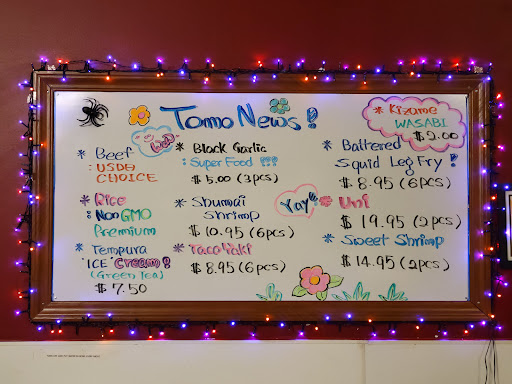 Tomo News!
* Kizame
WASABI
$2.00
Wow
* Beef
: USDA
CHOICE
* Rice
: Non GMO
Premium
* Tempura
"ICE Cream!
(Green Tea)
$ 7.50
* Black Garlic
: Super Food !!!
$ 5.00 (3pcs)
* Shumai
Shrimp
$ 10.95 (6pcs)
* Tacoyaki
$ 8.95 (6pcs)
* Battered
Squid Leg Fry!
$ 8.95 (6pcs)
Yay
* Uni
$ 19.95 (2pcs)
* Sweet Shrimp
$ 14.95 (2pcs)